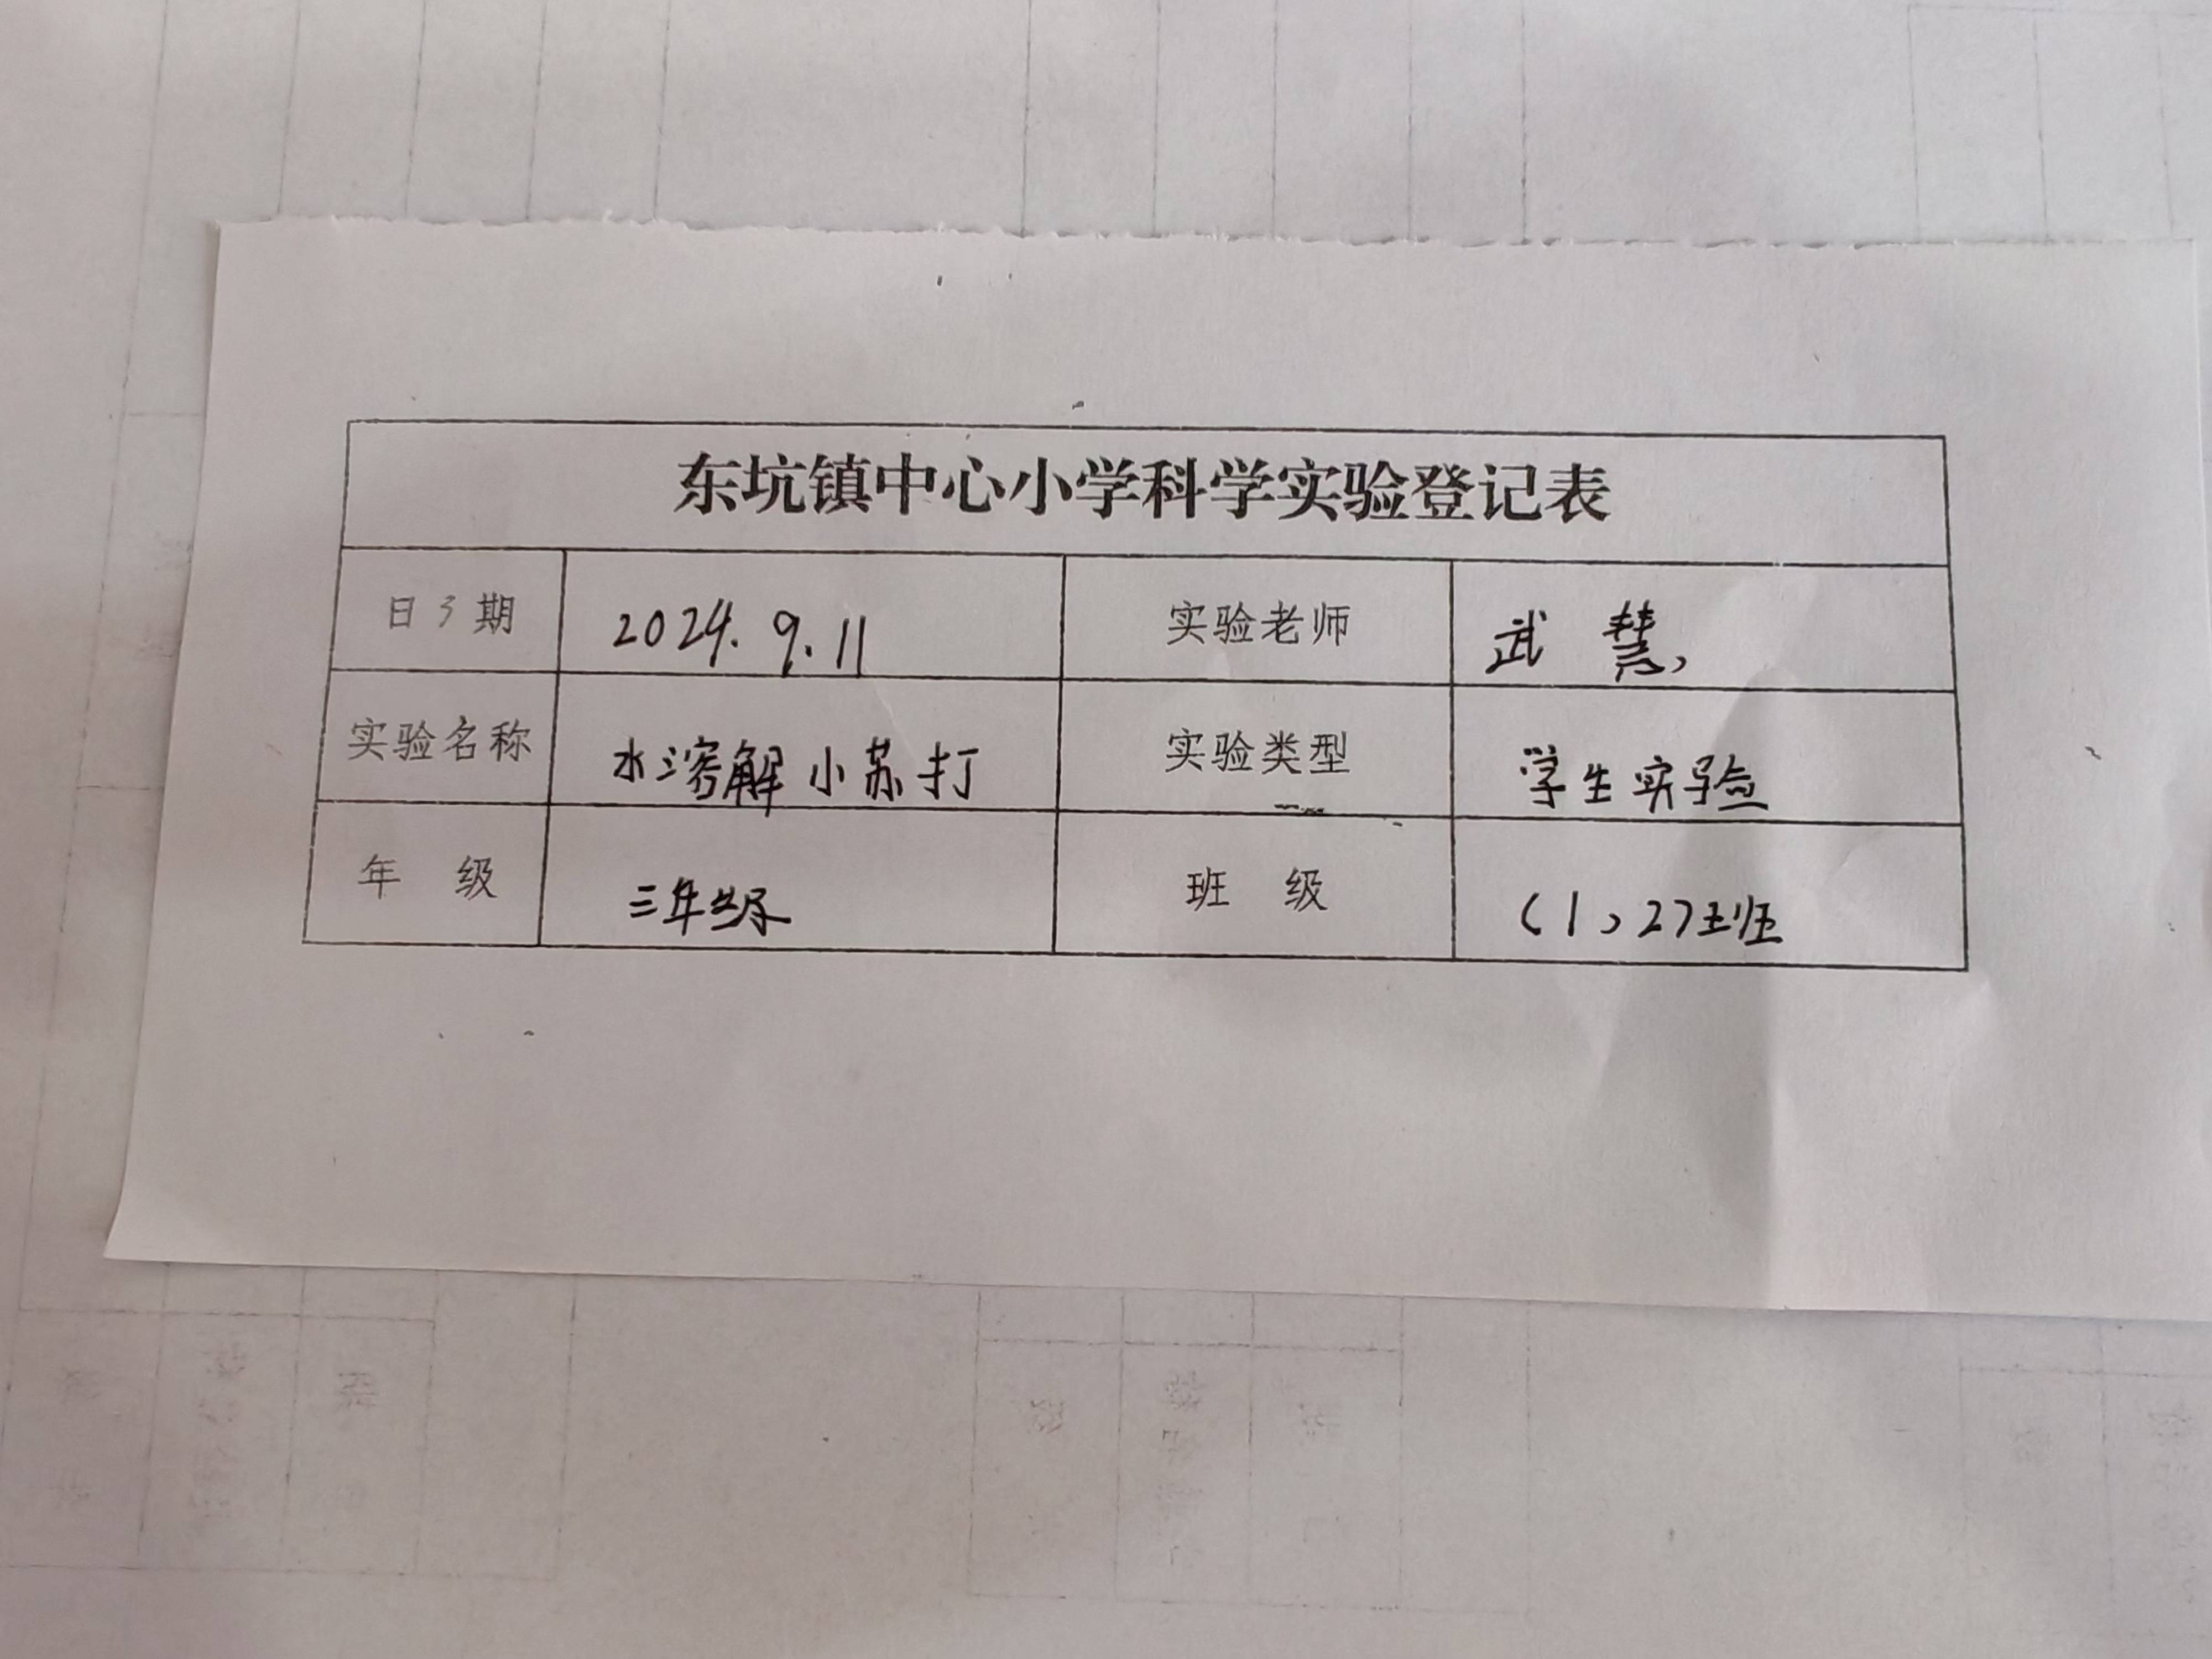 东坑镇中心小学科学实验登记表
日期 2024.9.11 实验老师 武慧
实验名称 水溶解小苏打 实验类型 学生实验
年 级 三年级 班 级 (1,2)班